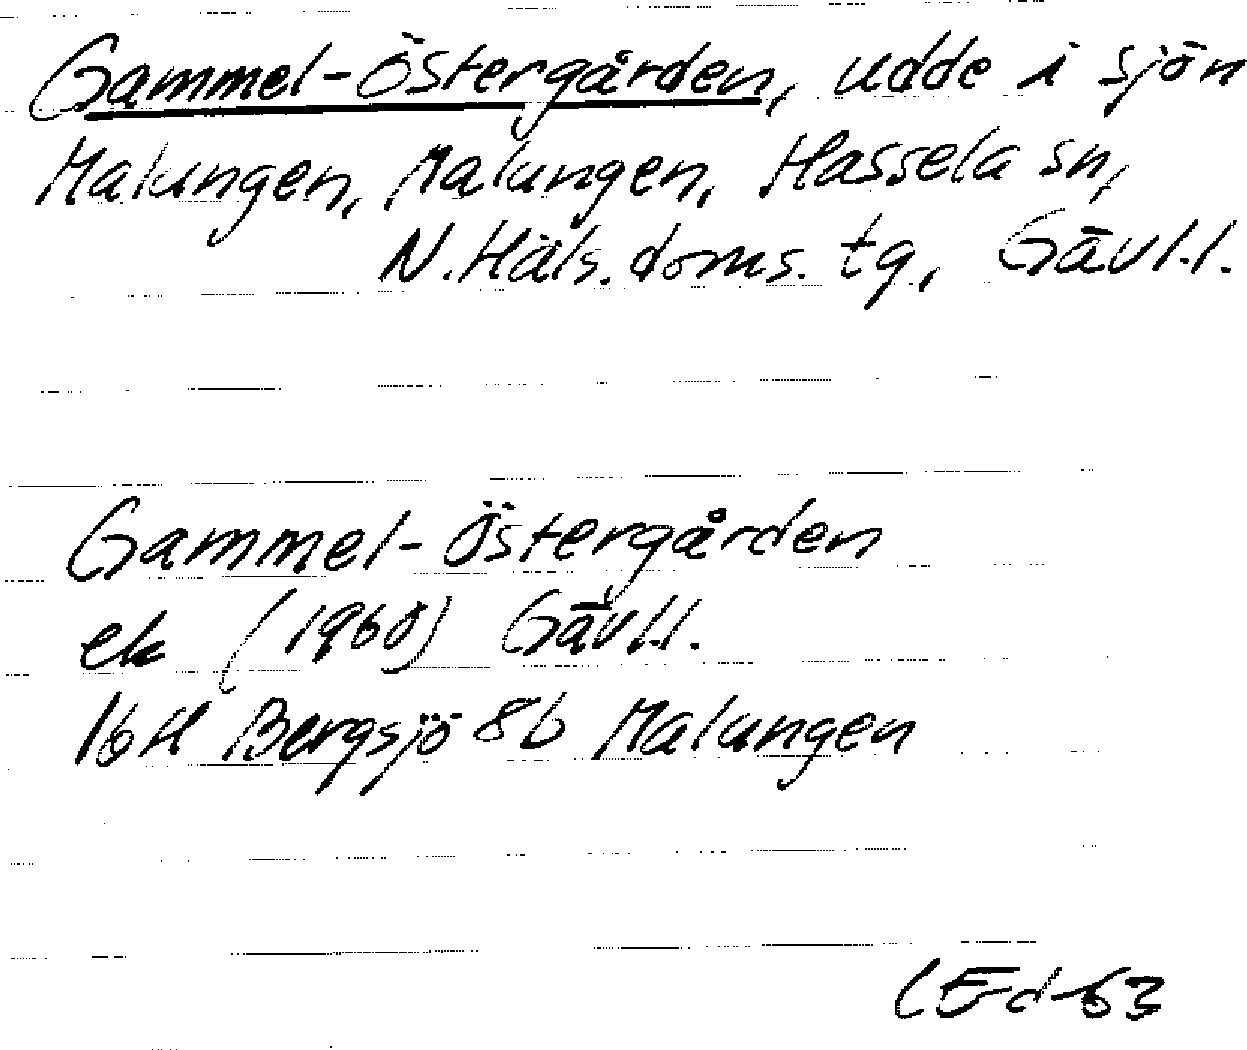 Gammel-Östergården, udde i sjön
Malungen, Malungen, Hassela sn,
N. Häls. doms. tg., Gävl.l.
Gammel-Östergården
ek (1960) Gävl.l.
16H Bergsjö 8b Malungen